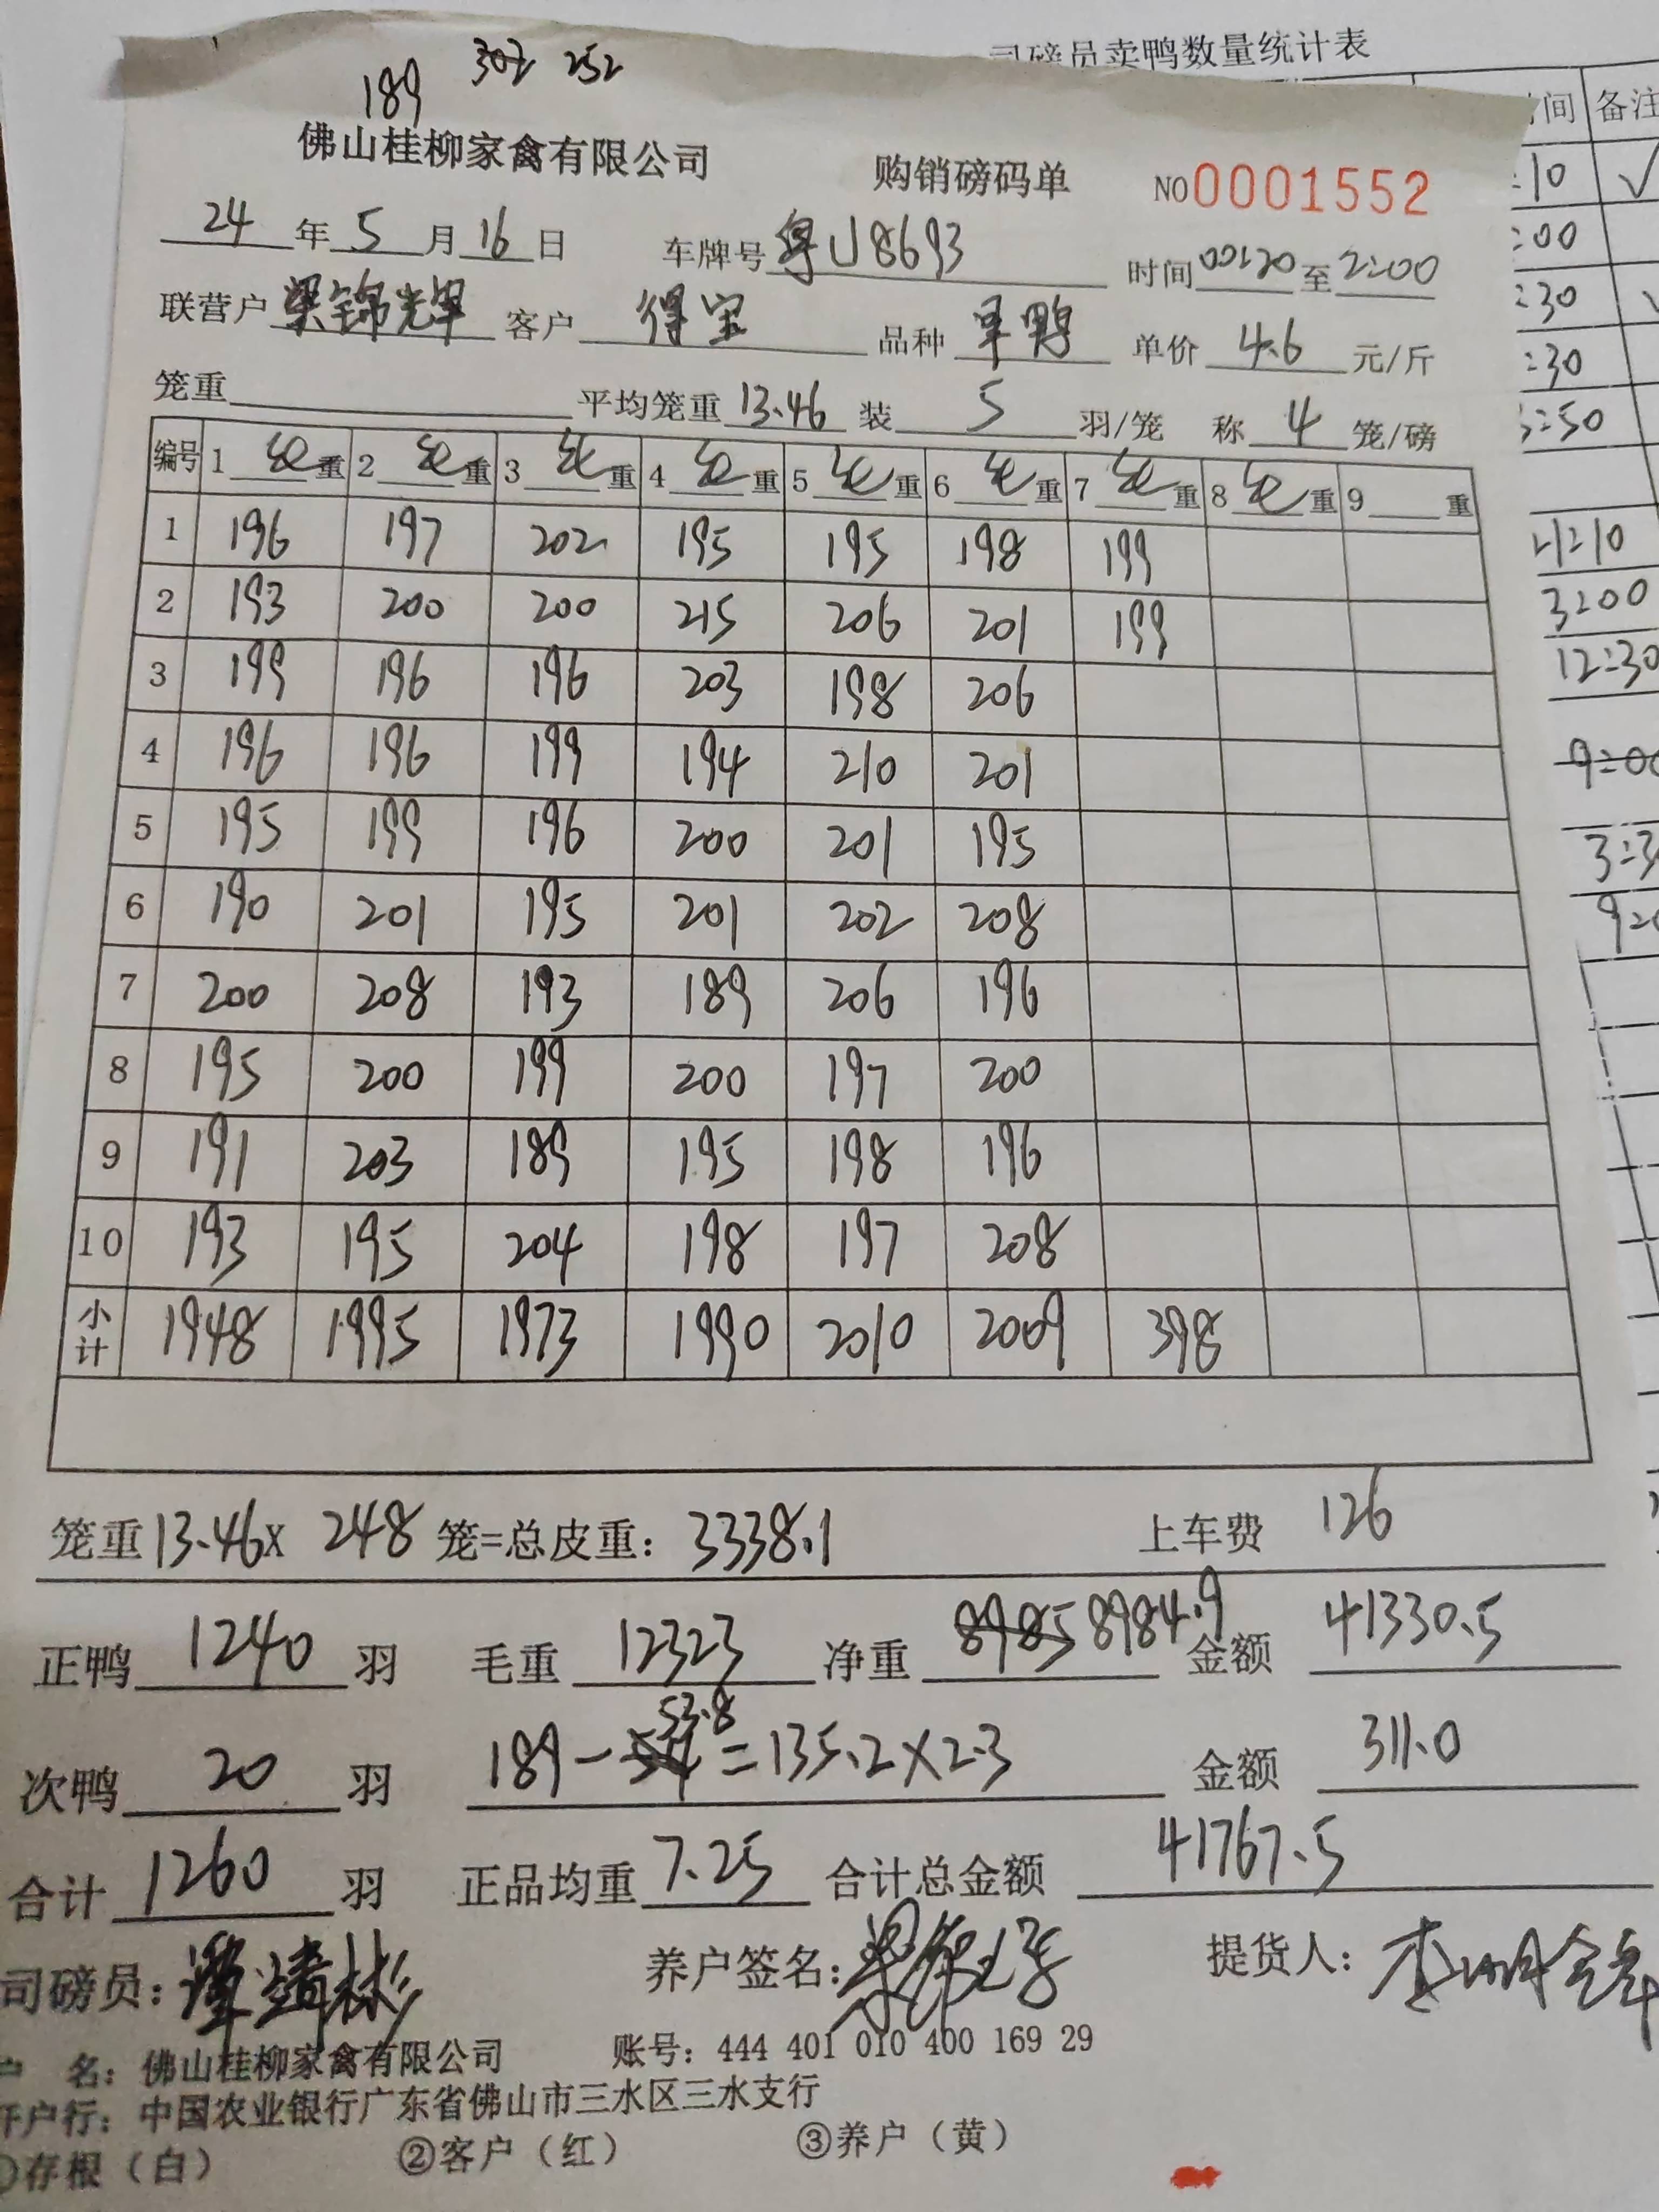 司磅员卖鸭数量统计表
302 252
189
佛山桂柳家禽有限公司 购销磅码单 NO0001552
24年5月16日 车牌号粤J8693 时间00:20至2:00
联营户梁锦光 客户得宝 品种 单价4.6元/斤
笼重 平均笼重13.46装5羽/笼 称4笼/磅
编号 1 重 2 重 3 重 4 重 5 重 6 重 7 重 8 重 9 重
1 196 197 202 195 195 198 199
2 193 200 200 215 206 201 199
3 199 196 196 203 198 206
4 196 196 199 194 210 201
5 195 199 196 200 201 195
6 190 201 195 201 202 208
7 200 208 193 189 206 196
8 195 200 199 200 197 200
9 191 203 189 195 198 196
10 193 195 204 198 197 208
小计 1948 1995 1973 1990 2010 2009 398
笼重13.46X 248笼=总皮重：3338.1 上车费 126
正鸭1240羽 毛重12323 净重8985 8984.9 金额41330.5
次鸭20羽 189-54 53.8=135.2X2.3 金额311.0
合计1260羽 正品均重7.25 合计总金额41767.5
司磅员：谭靖彬 养户签名： 提货人：李
户 名：佛山桂柳家禽有限公司 账号：444 401 010 400 169 29
开户行：中国农业银行广东省佛山市三水区三水支行
存根（白） ②客户（红） ③养户（黄）
时间 备注
:10 ✓
:00
:30
:30
:50
4:10
3:00
12:30
9:00